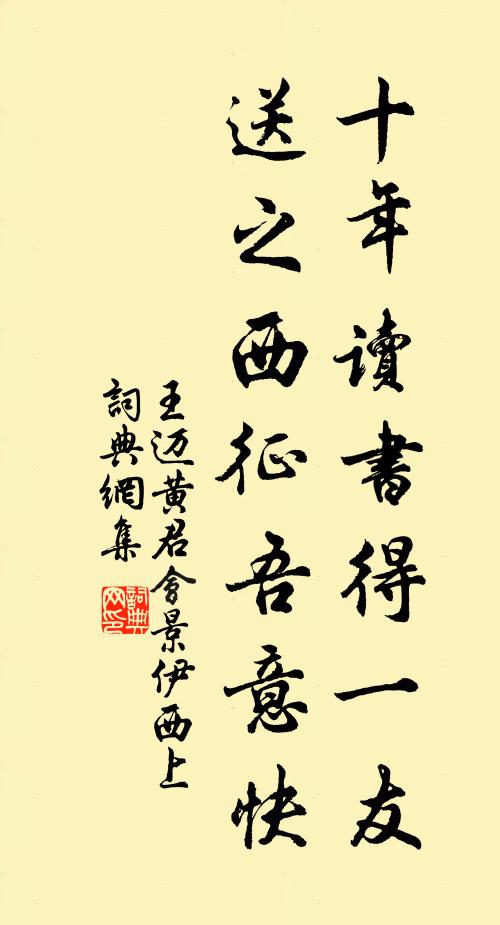 十年讀書得一友
送之西征吾意快
王迈黄君會景伊西上
詞典網集
詞典网印